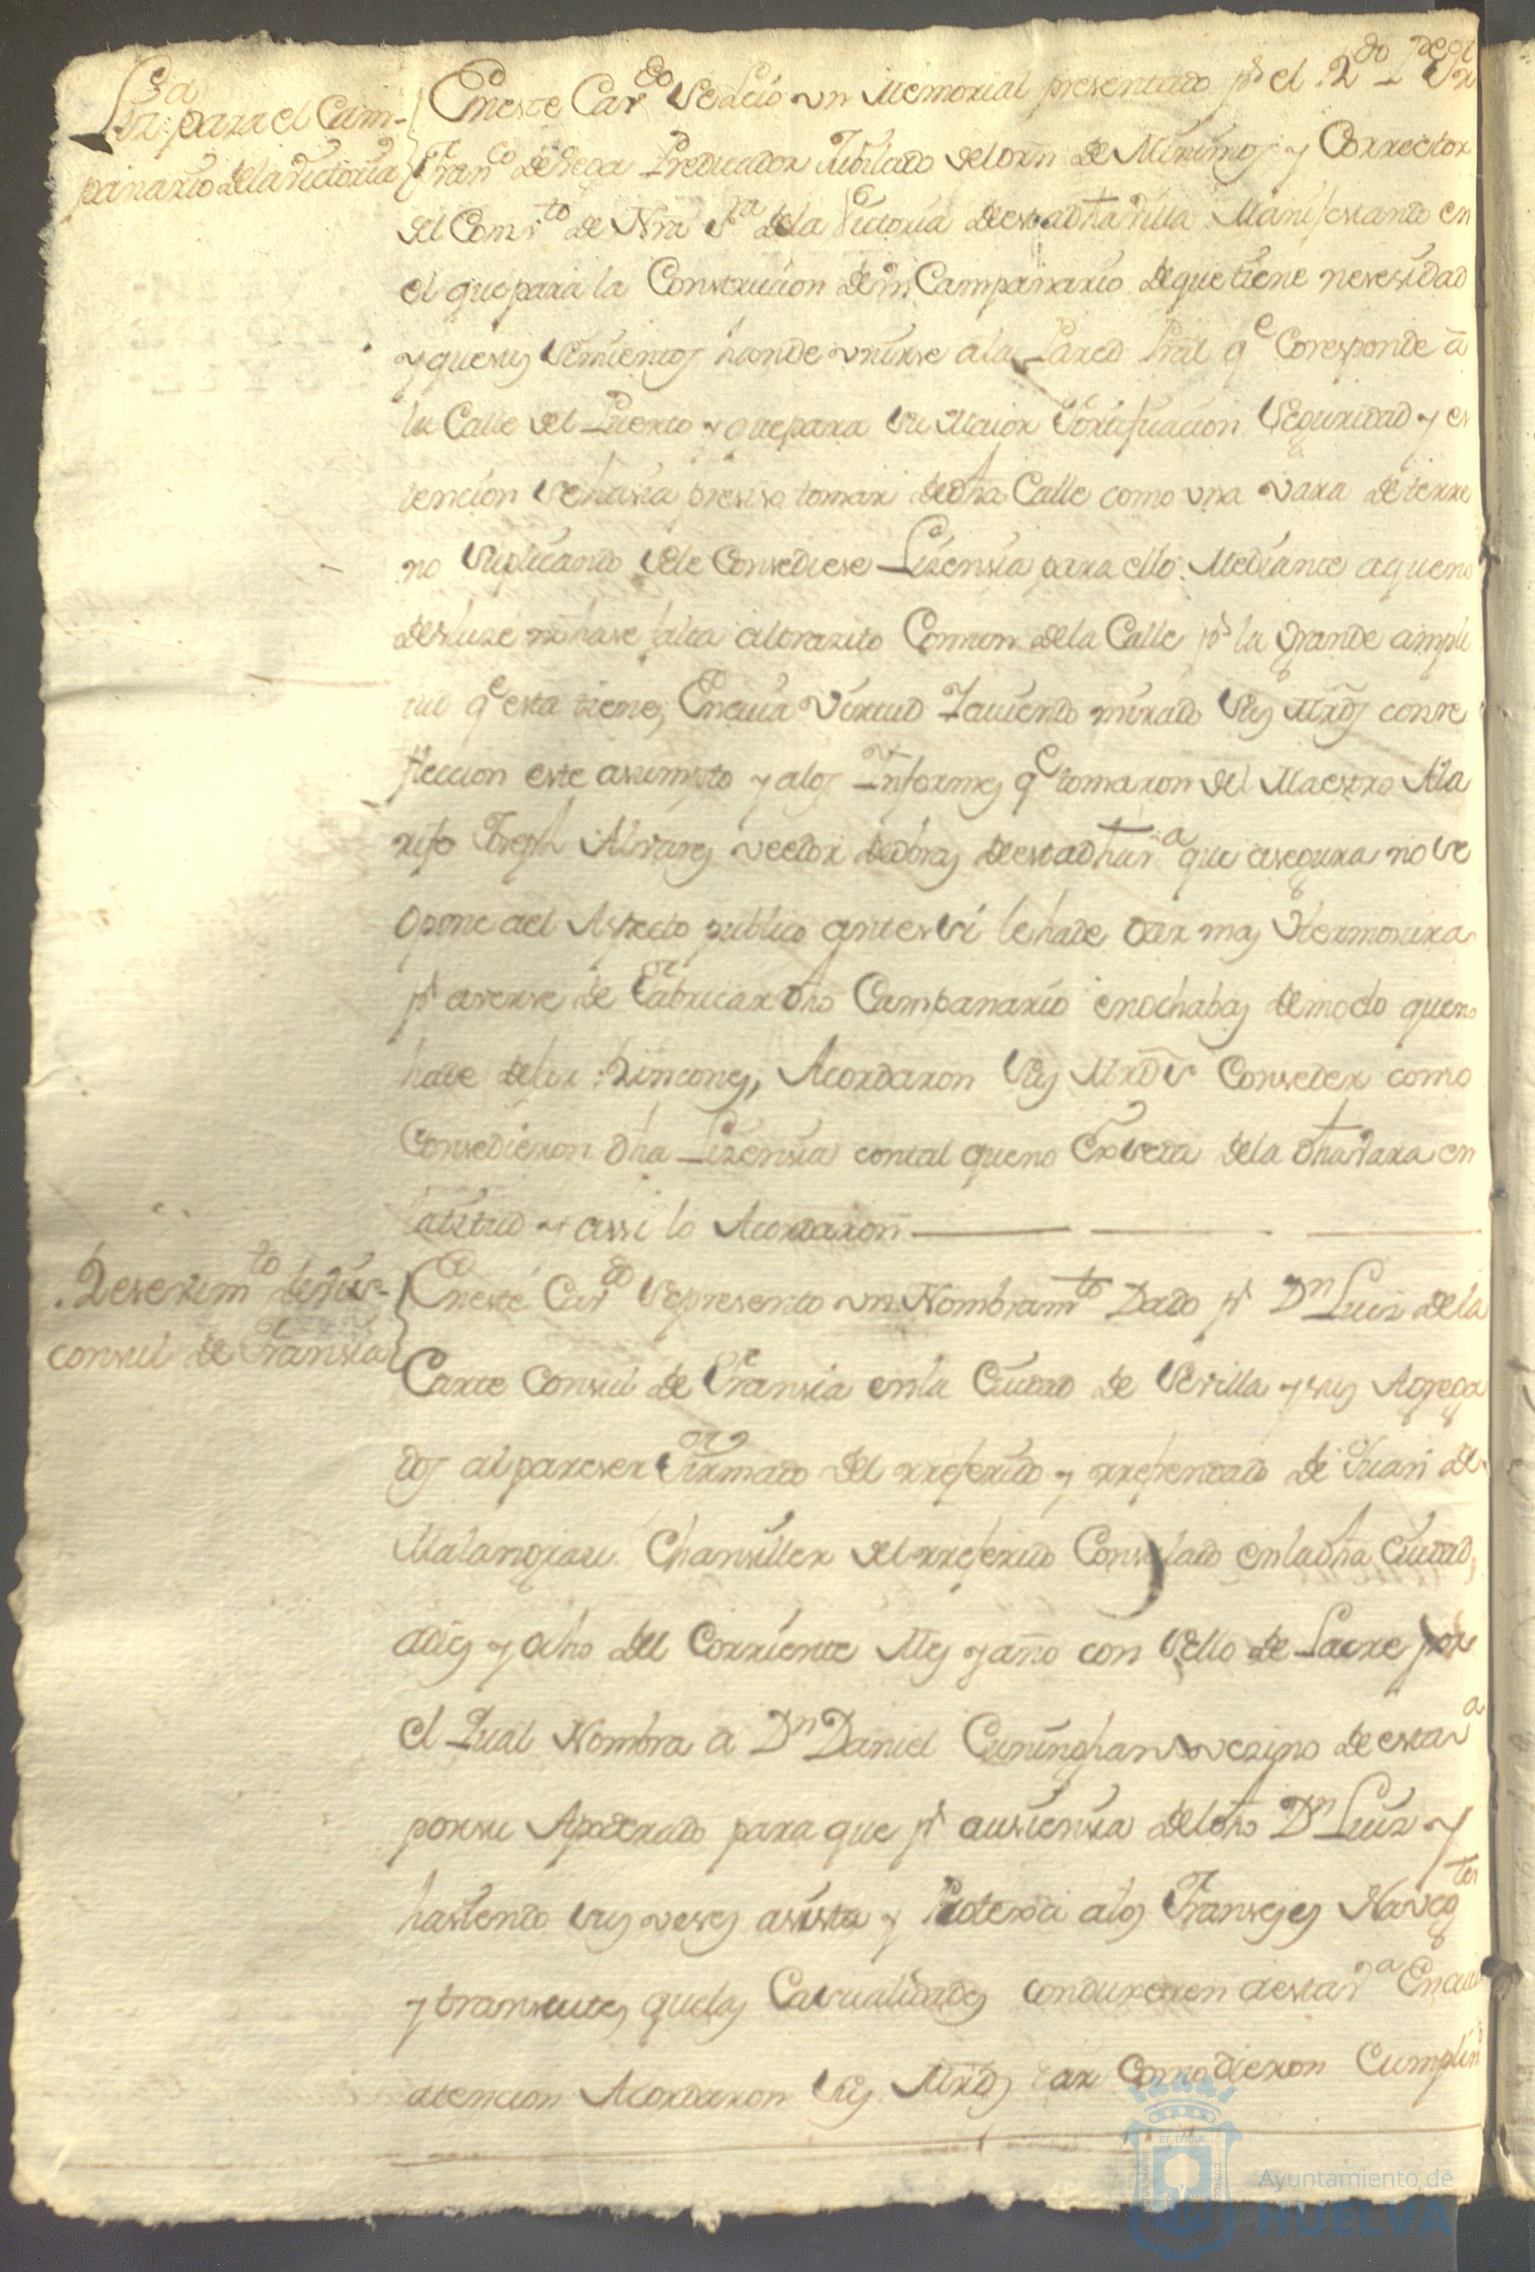 Lizª para el Cam-
panario de la Victoria
En este Cavdo se leió un Memorial presentado pr el Rdo Pe
Franco de Vega Predicador Jubilado del orn de Minimos y Corrector
del Combto de Nra Sra de la Victoria de esta dha Villa Manifestando en
el que para la Construcion de un Campanario de que tiene nesesidad
y que sus simientos han de unirse a la Pared Pral qe Coresponde â
la Calle del Puerto y que para su Maior Fortificacion Seguridad y es
tencion se hasia presiso tomar de dha Calle como una vara de terre
no suplicando se le Consediese Lizensia para ello. Mediante a que no
desluze ni hase falta al tranzito Comun de la Calle pr la grande ampli
tu qe esta tiene, En cuia virtud Haviendo mirado sus Mrds con re
fleccion este asumpto y a los Informes qe tomaron del Maestro Ala
rife Joseph Alvares veedor de obras de esta dha va que asegura no se
opone a el Aspecto publico antes si le ha de dar mas Hermosura
pr averse de Fabricar dho Campanario en ochabas de modo que no
ha de dejar Rincones, Acordaron sus Mrds Conseder como
Consedieron dha Lizensia con tal que no Exseda de la dha vara en
latitud y assi lo Acordaron
Resevimto de Vis-
consul de Fransia
En este Cavdo se presento un Nombramto Dado pr Dn Luis de la
Carte Consul de Fransia en la Ciudad de Sevilla y sus Agrega
dos al pareser Firmado del rreferido y rrefrendado de Juan de
Malangrau Chansiller del rreferido Consulado en la dha Ciudad,
a dies y ocho del Corriente Mes y año con sello de Lacre por
el Qual Nombra a Dn Daniel Cuninghan vezino de esta va
por su Apoderado para que pr ausiensia del dho Dn Luis y
hasiendo sus veses asista y Proteja a los Franseses Navegtes
y transeutes que las Casualidades condugeren a esta va En cuia
atencion Acordaron sus Mrds dar Como dieron Cumplim
Ayuntamiento de
HUELVA